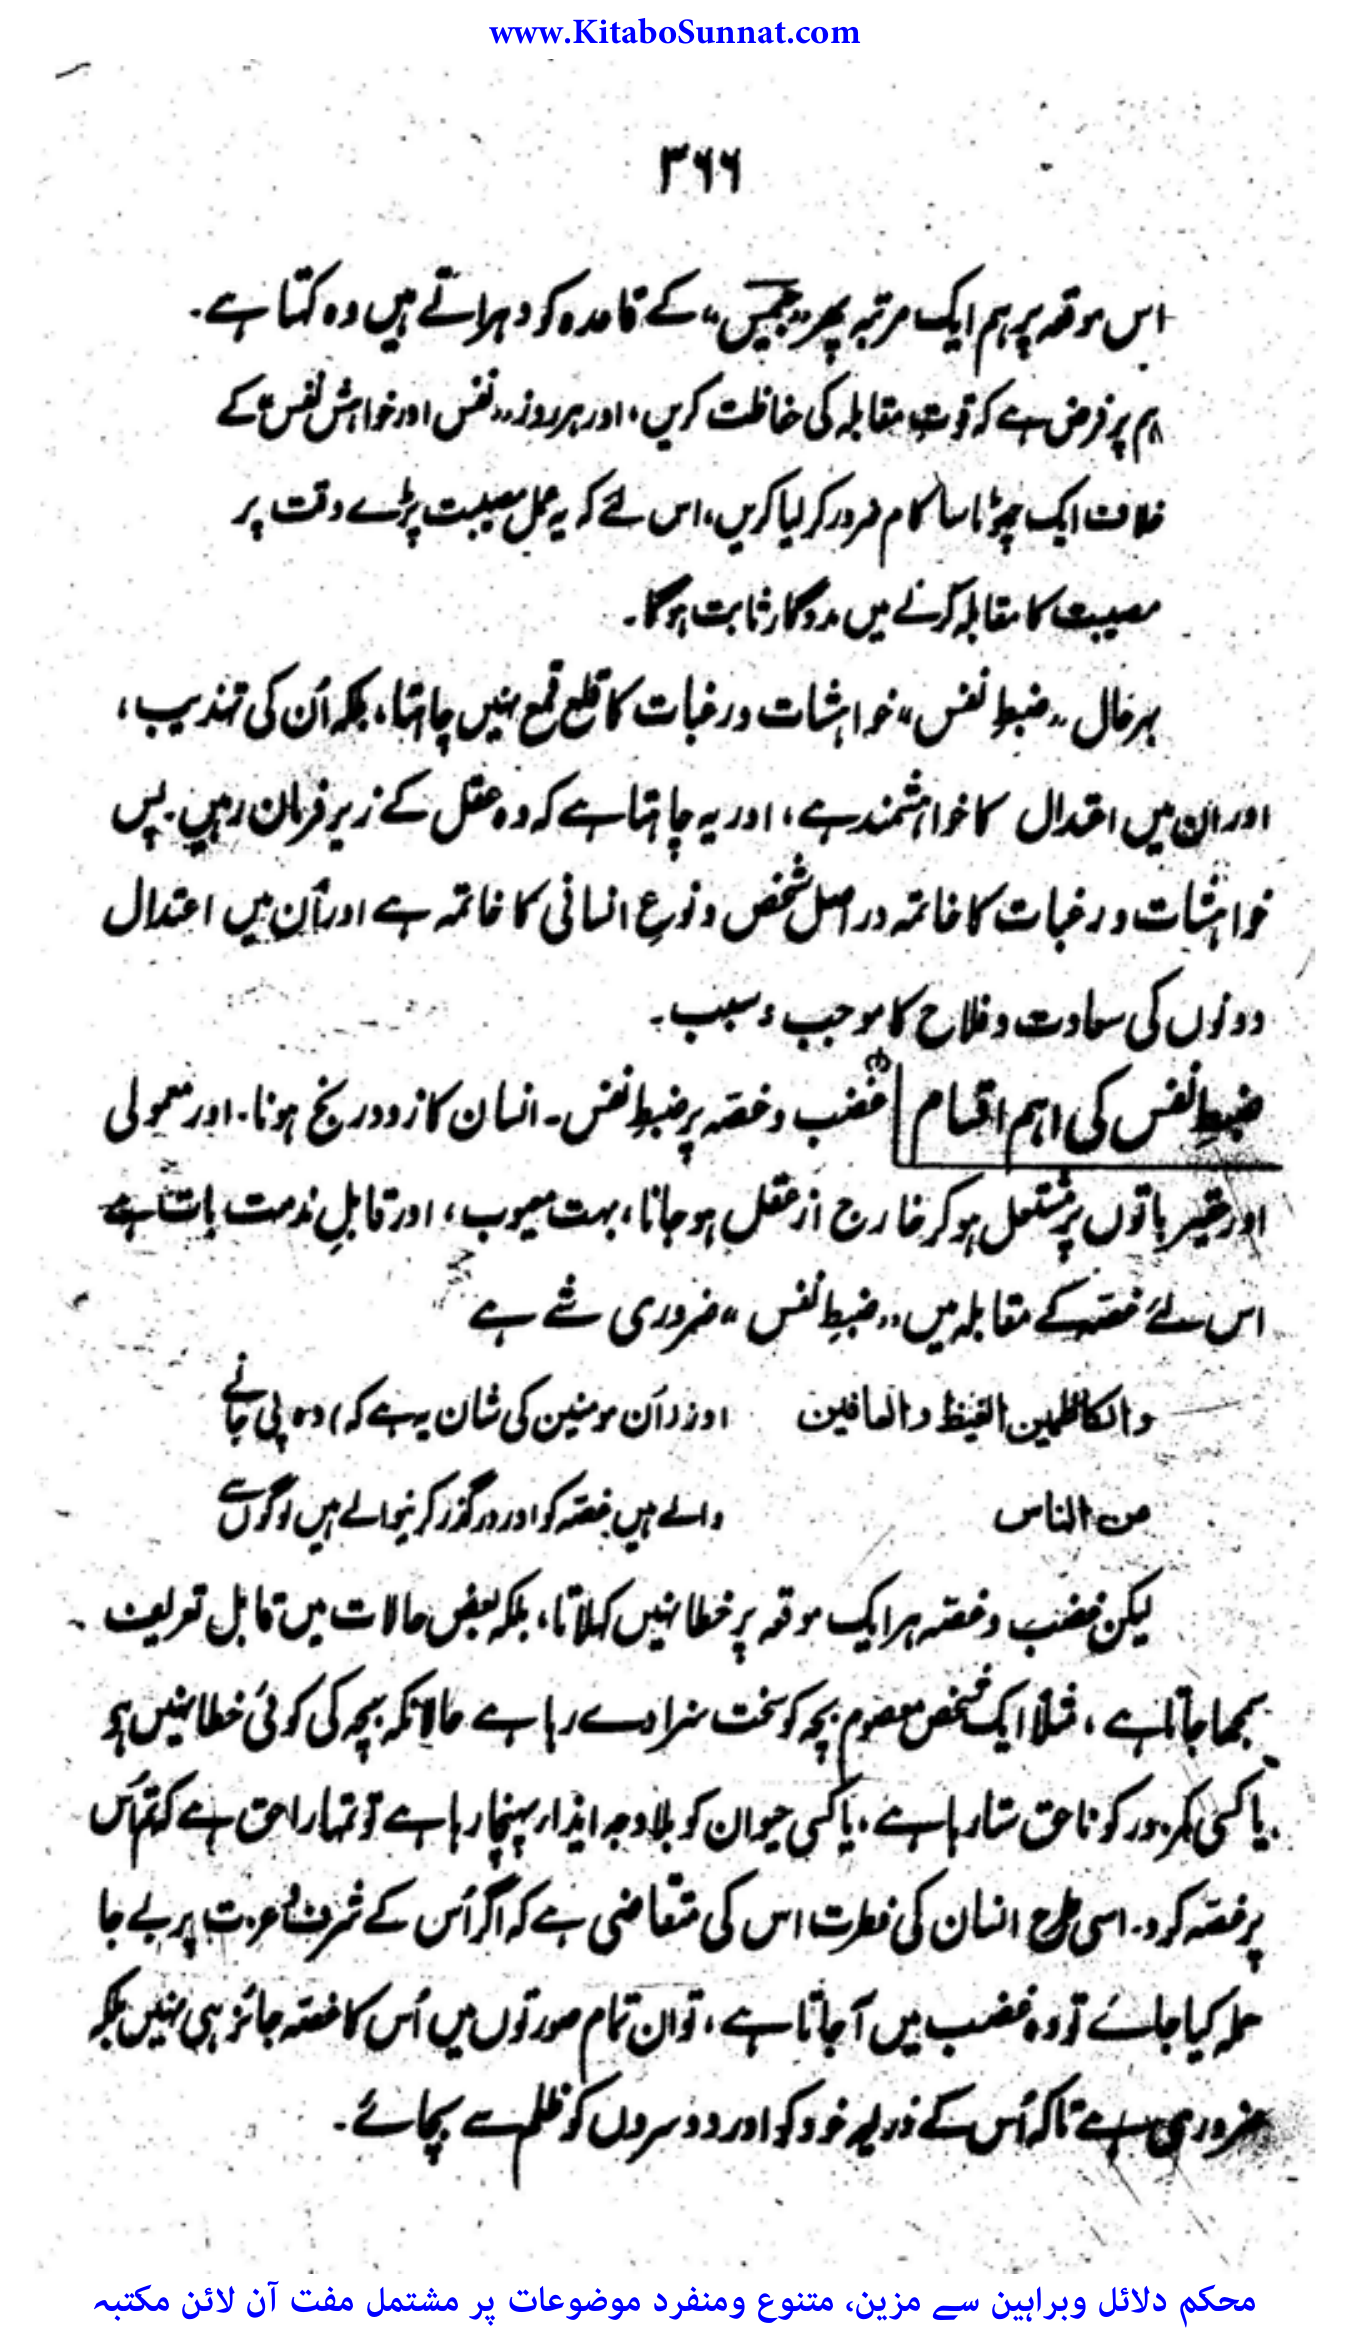 www.KitaboSunnat.com
۳۶۶
اس موقعہ پر ہم ایک مرتبہ پھر ”جمیس“ کے قاعدہ کو دہراتے ہیں وہ کہتا ہے۔
ہم پر فرض ہے کہ قوتِ مقابلہ کی حفاظت کریں، اور ہر روز ”نفس اور خواہش نفس“ کے
خلاف ایک چھوٹا سا کام ضرور کر لیا کریں، اس لئے کہ یہ عمل مصیبت پڑے وقت پر
مصیبت کا مقابلہ کرنے میں مددگار ثابت ہوگا۔
بہرحال ”ضبطِ نفس“ خواہشات و رغبات کا قلع قمع نہیں چاہتا، بلکہ اُن کی تہذیب،
اور ان میں اعتدال کا خواہشمند ہے، اور یہ چاہتا ہے کہ وہ عقل کے زیرِ فرمان رہیں۔ پس
خواہشات و رغبات کا خاتمہ دراصل شخص و نوعِ انسانی کا خاتمہ ہے اور اُن میں اعتدال
دونوں کی سعادت و فلاح کا موجب و سبب۔
ضبطِ نفس کی اہم اقسام | غضب و غصہ پر ضبطِ نفس۔ انسان کا زود رنج ہونا۔ اور معمولی
اور حقیر باتوں پر مشتعل ہو کر خارج از عقل ہو جانا، بہت معیوب، اور قابلِ مذمت بات ہے
اس لئے غصہ کے مقابلہ میں ”ضبطِ نفس“ ضروری شے ہے
والکاظمین الغیظ والعافین اور (اُن مومنین کی شان یہ ہے کہ) وہ پی جانے
عن الناس والے ہیں غصہ کو اور درگذر کرنیوالے ہیں لوگوں سے
لیکن غضب و غصہ ہر ایک موقعہ پر خطا نہیں کہلاتا، بلکہ بعض حالات میں قابل تعریف
سمجھا جاتا ہے، مثلاً ایک شخص معصوم بچہ کو سخت سزا دے رہا ہے حالانکہ بچہ کی کوئی خطا نہیں ہے
یا کسی کمزور کو ناحق ستا رہا ہے، یا کسی حیوان کو بلاوجہ ایذا پہنچا رہا ہے تو تمہارا حق ہے کہ تم اُس
پر غصہ کرو۔ اسی طرح انسان کی فطرت اس کی متقاضی ہے کہ اگر اُس کے شرف و عزت پر بے جا
حملہ کیا جائے تو وہ غضب میں آ جاتا ہے، تو ان تمام صورتوں میں اُس کا غصہ جائز ہی نہیں بلکہ
ضروری ہے تاکہ اُس کے ذریعہ خود کو اور دوسروں کو ظلم سے بچائے۔
محکم دلائل وبراہین سے مزین، متنوع ومنفرد موضوعات پر مشتمل مفت آن لائن مکتبہ